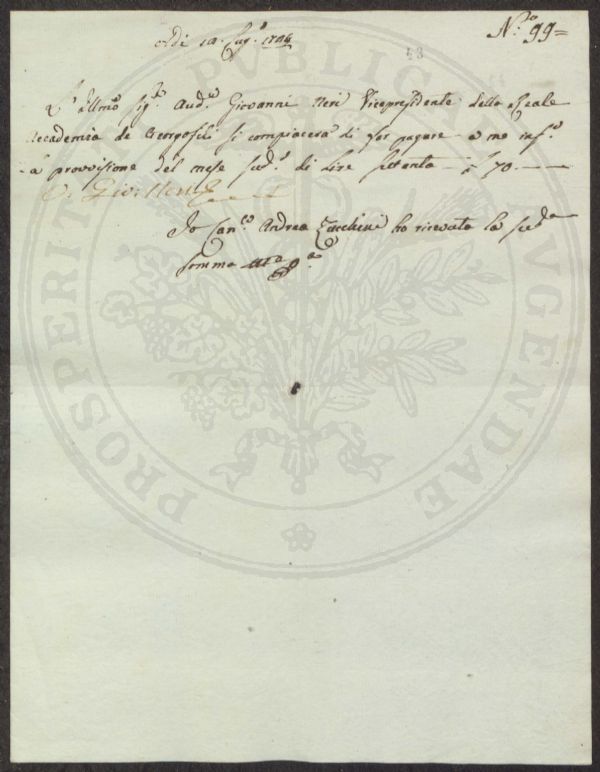 N.º 99=
Adì 10. Lug.º 1786
48
L' Illmo Sig.r Aud.re Giovanni Neri Vicepresidente della Reale
Accademia de Georgofili si compiacerà di far pagare a me infr.º
la provvisione del mese sud.º di Lire settanta — £ 70. —
V. Gio: Neri
Io Can.co Andrea Zucchini ho ricevuta la sud.a
somma
PROSPERITATI PUBLICAE AUGENDAE